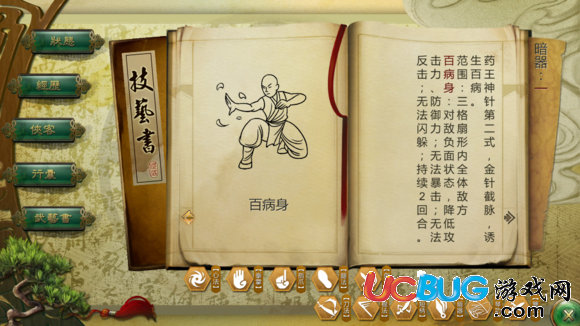 狀態
經歷
俠客
行囊
武藝書
技藝書
百病身
暗器：一
药王神针第二式，金针截脉，诱
生百病。
范围：三格扇形内全体敌方
百病身：对敌负面状态，降低攻
击力、防御力；无法暴击；无法
反击；无法闪躲；持续2回合。
UCBUG游戏网
.com